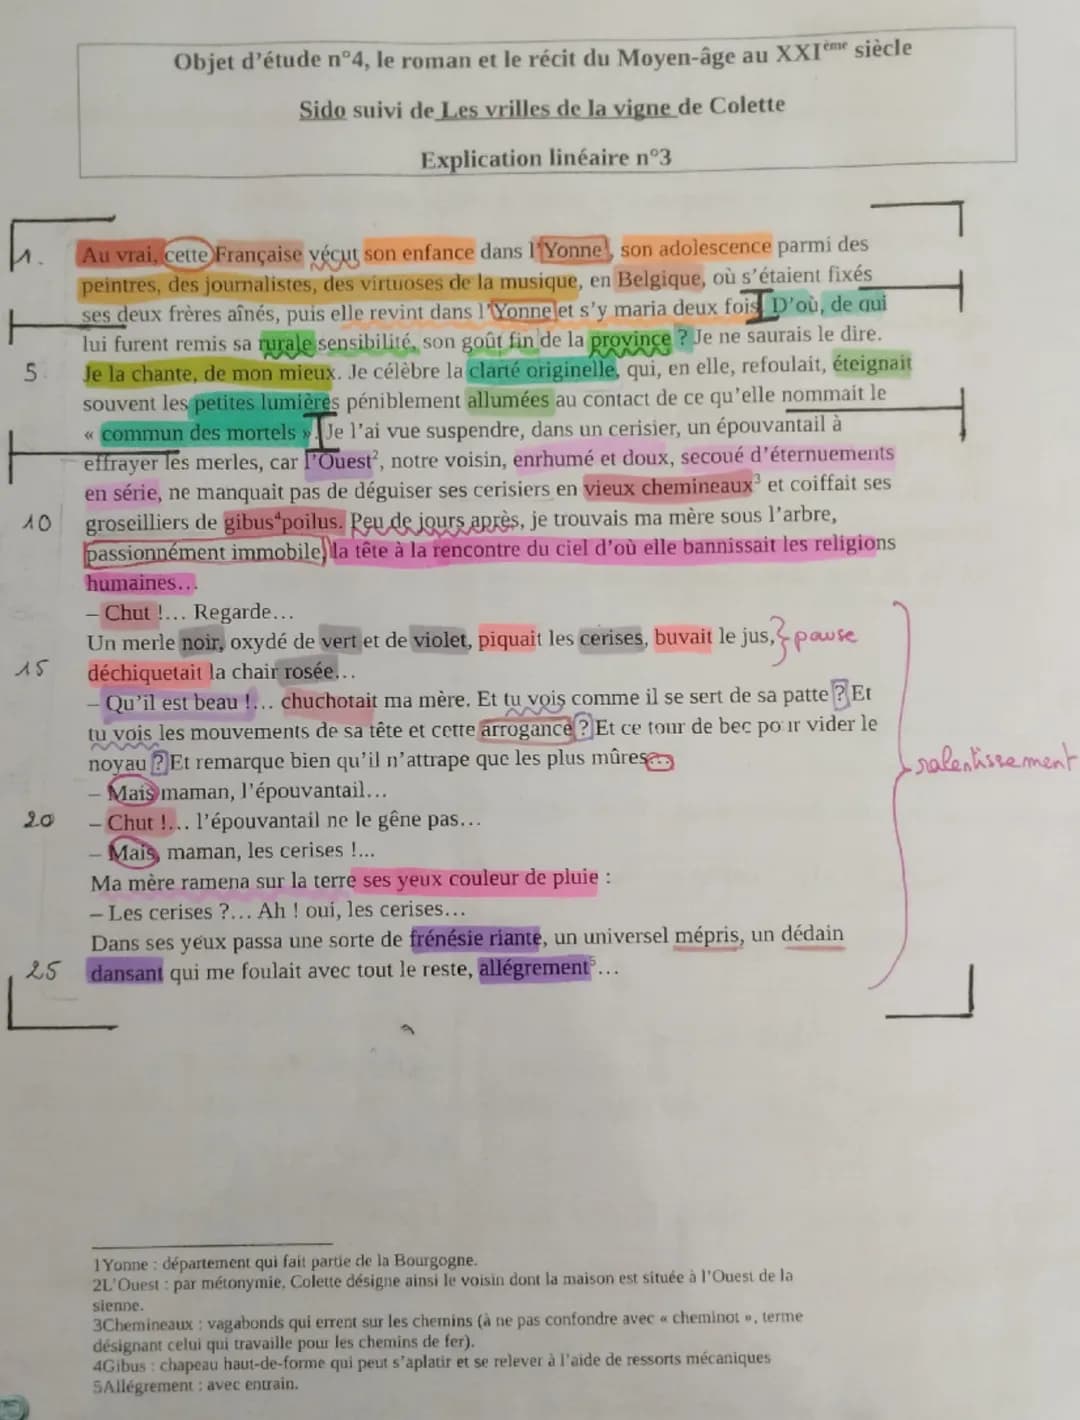 Objet d'étude n°4, le roman et le récit du Moyen-âge au XXIème siècle
Sido suivi de Les vrilles de la vigne de Colette
Explication linéaire n°3
1. Au vrai, cette Française vécut son enfance dans l'Yonne¹, son adolescence parmi des
peintres, des journalistes, des virtuoses de la musique, en Belgique, où s'étaient fixés
ses deux frères aînés, puis elle revint dans l'Yonne et s'y maria deux fois. D'où, de qui
lui furent remis sa rurale sensibilité, son goût fin de la province ? Je ne saurais le dire.
5 Je la chante, de mon mieux. Je célèbre la clarté originelle, qui, en elle, refoulait, éteignait
souvent les petites lumières péniblement allumées au contact de ce qu'elle nommait le
« commun des mortels ». Je l'ai vue suspendre, dans un cerisier, un épouvantail à
effrayer les merles, car l'Ouest², notre voisin, enrhumé et doux, secoué d'éternuements
en série, ne manquait pas de déguiser ses cerisiers en vieux chemineaux³ et coiffait ses
10 groseilliers de gibus⁴ poilus. Peu de jours après, je trouvais ma mère sous l'arbre,
passionnément immobile, la tête à la rencontre du ciel d'où elle bannissait les religions
humaines...
– Chut !... Regarde...
Un merle noir, oxydé de vert et de violet, piquait les cerises, buvait le jus, pause
15 déchiquetait la chair rosée...
– Qu'il est beau !... chuchotait ma mère. Et tu vois comme il se sert de sa patte ? Et
tu vois les mouvements de sa tête et cette arrogance ? Et ce tour de bec pour vider le
noyau ? Et remarque bien qu'il n'attrape que les plus mûres...
ralentissement
– Mais maman, l'épouvantail...
20 – Chut !... l'épouvantail ne le gêne pas...
– Mais, maman, les cerises !...
Ma mère ramena sur la terre ses yeux couleur de pluie :
– Les cerises ?... Ah ! oui, les cerises...
Dans ses yeux passa une sorte de frénésie riante, un universel mépris, un dédain
25 dansant qui me foulait avec tout le reste, allégrement⁵...
1Yonne : département qui fait partie de la Bourgogne.
2L'Ouest : par métonymie, Colette désigne ainsi le voisin dont la maison est située à l'Ouest de la
sienne.
3Chemineaux : vagabonds qui errent sur les chemins (à ne pas confondre avec « cheminot », terme
désignant celui qui travaille pour les chemins de fer).
4Gibus : chapeau haut-de-forme qui peut s'aplatir et se relever à l'aide de ressorts mécaniques
5Allégrement : avec entrain.